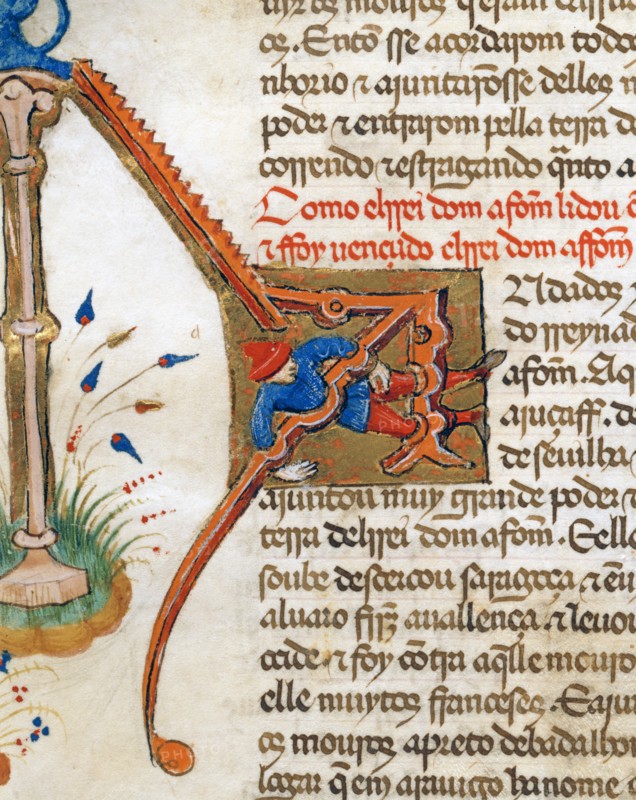 os mouros q̃ eram
os. Entõ sse acordarom todo
nhorio ⁊ aiuntarõsse delles
poder ⁊ entrarom pella terra d
correndo ⁊ estragando q̃nto a
Como elrrei dom afom̃ lidou
⁊ ffoy uençudo elrrei dom affom̃
Andados
do rreynad
afom̃. Aq
aiuçaff. de
de seuilha
aiuntou muy grande poder ⁊
terra delrrei dom afom̃. E elle
soube desçercou saragoça ⁊ en
aluaro ffr̃z a uallença. ⁊ leuou
foy cõtra aq̃lle mouro
elle muytos ffranceses. E aiu
os mouros a preto de badalhou
logar q̃ em arauigo ha nome